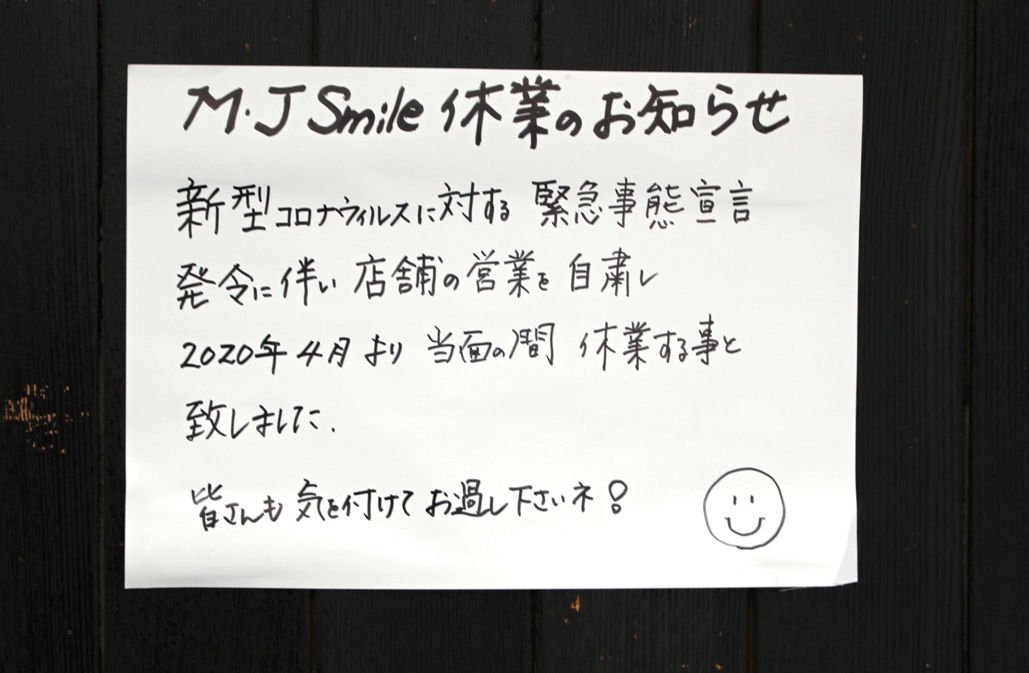 M・J Smile 休業のお知らせ
新型コロナウィルスに対する 緊急事態宣言
発令に伴い 店舗の営業を 自粛し
2020年4月より 当面の間 休業する事と
致しました.
皆さんも 気を付けて お過し下さいネ!